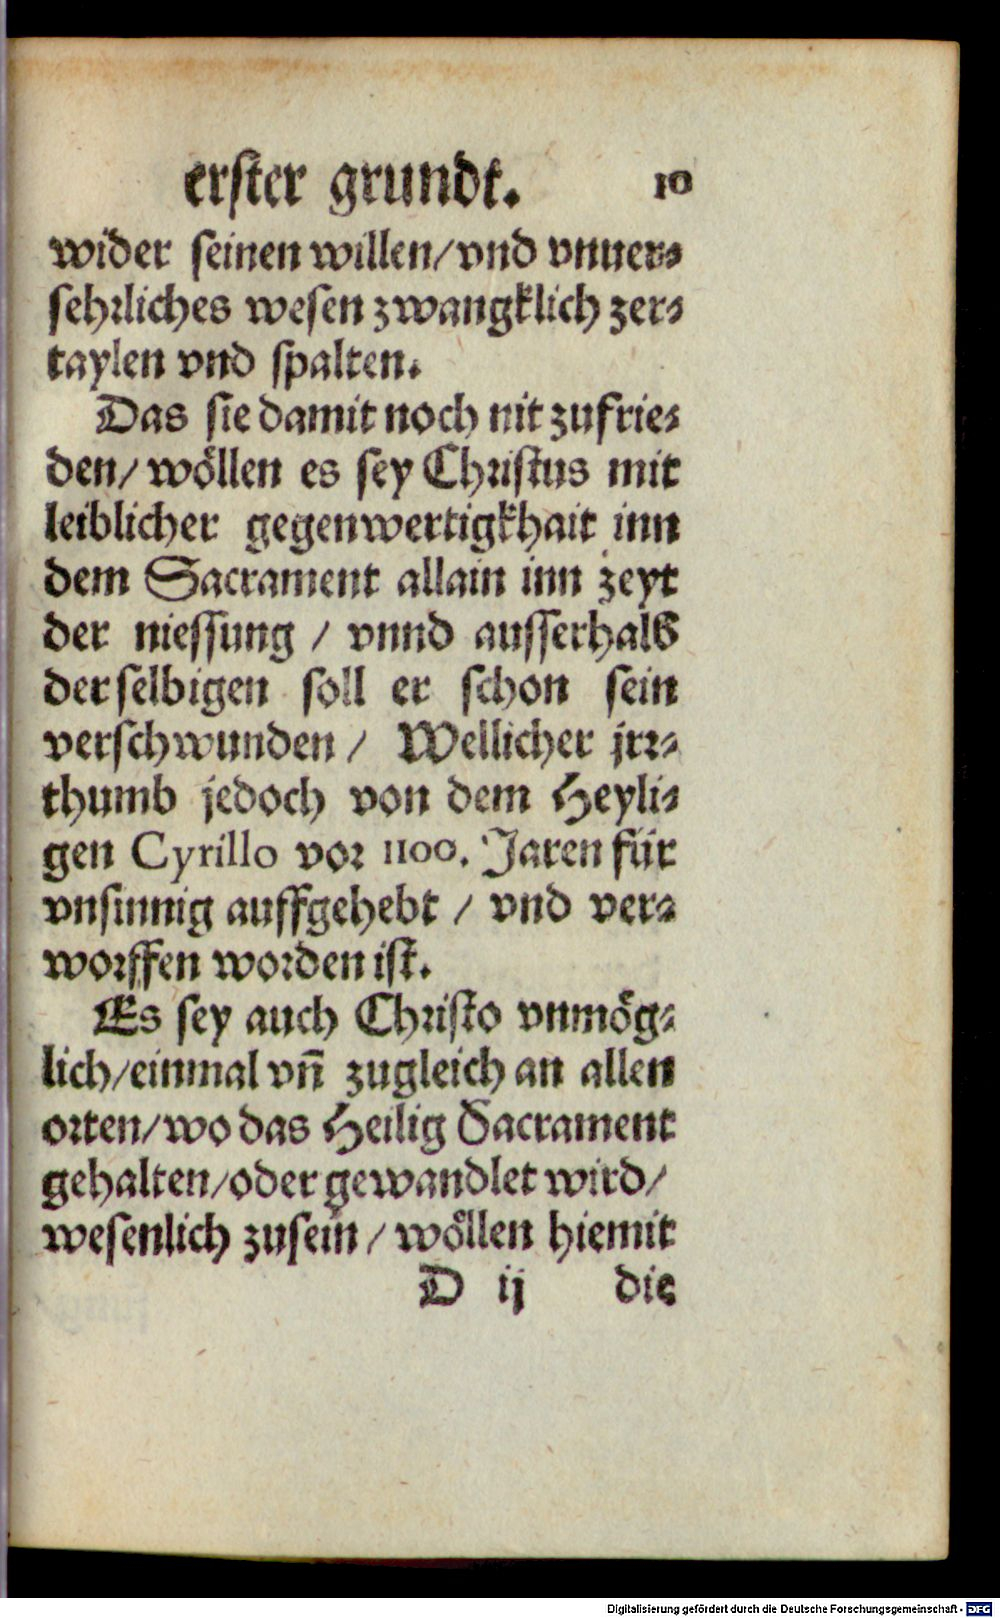 erster grundt. 10
wider seinen willen/vnd vnuer⸗
sehrliches wesen zwangklich zer⸗
taylen vnd spalten.
Das sie damit noch nit zufrie⸗
den/ wöllen es sey Christus mit
leiblicher gegenwertigkhait inn
dem Sacrament allain inn zeyt
der niessung / vnnd ausserhalb
derselbigen soll er schon sein
verschwunden / Wellicher jrr⸗
thumb jedoch von dem Heyli⸗
gen Cyrillo vor 1100. Jaren für
vnsinnig auffgehebt / vnd ver⸗
worffen worden ist.
Es sey auch Christo vnmög⸗
lich/einmal vñ zugleich an allen
orten/wo das Heilig Sacrament
gehalten/oder gewandlet wird/
wesenlich zusein / wöllen hiemit
D ij die
Digitalisierung gefördert durch die Deutsche Forschungsgemeinschaft - DFG